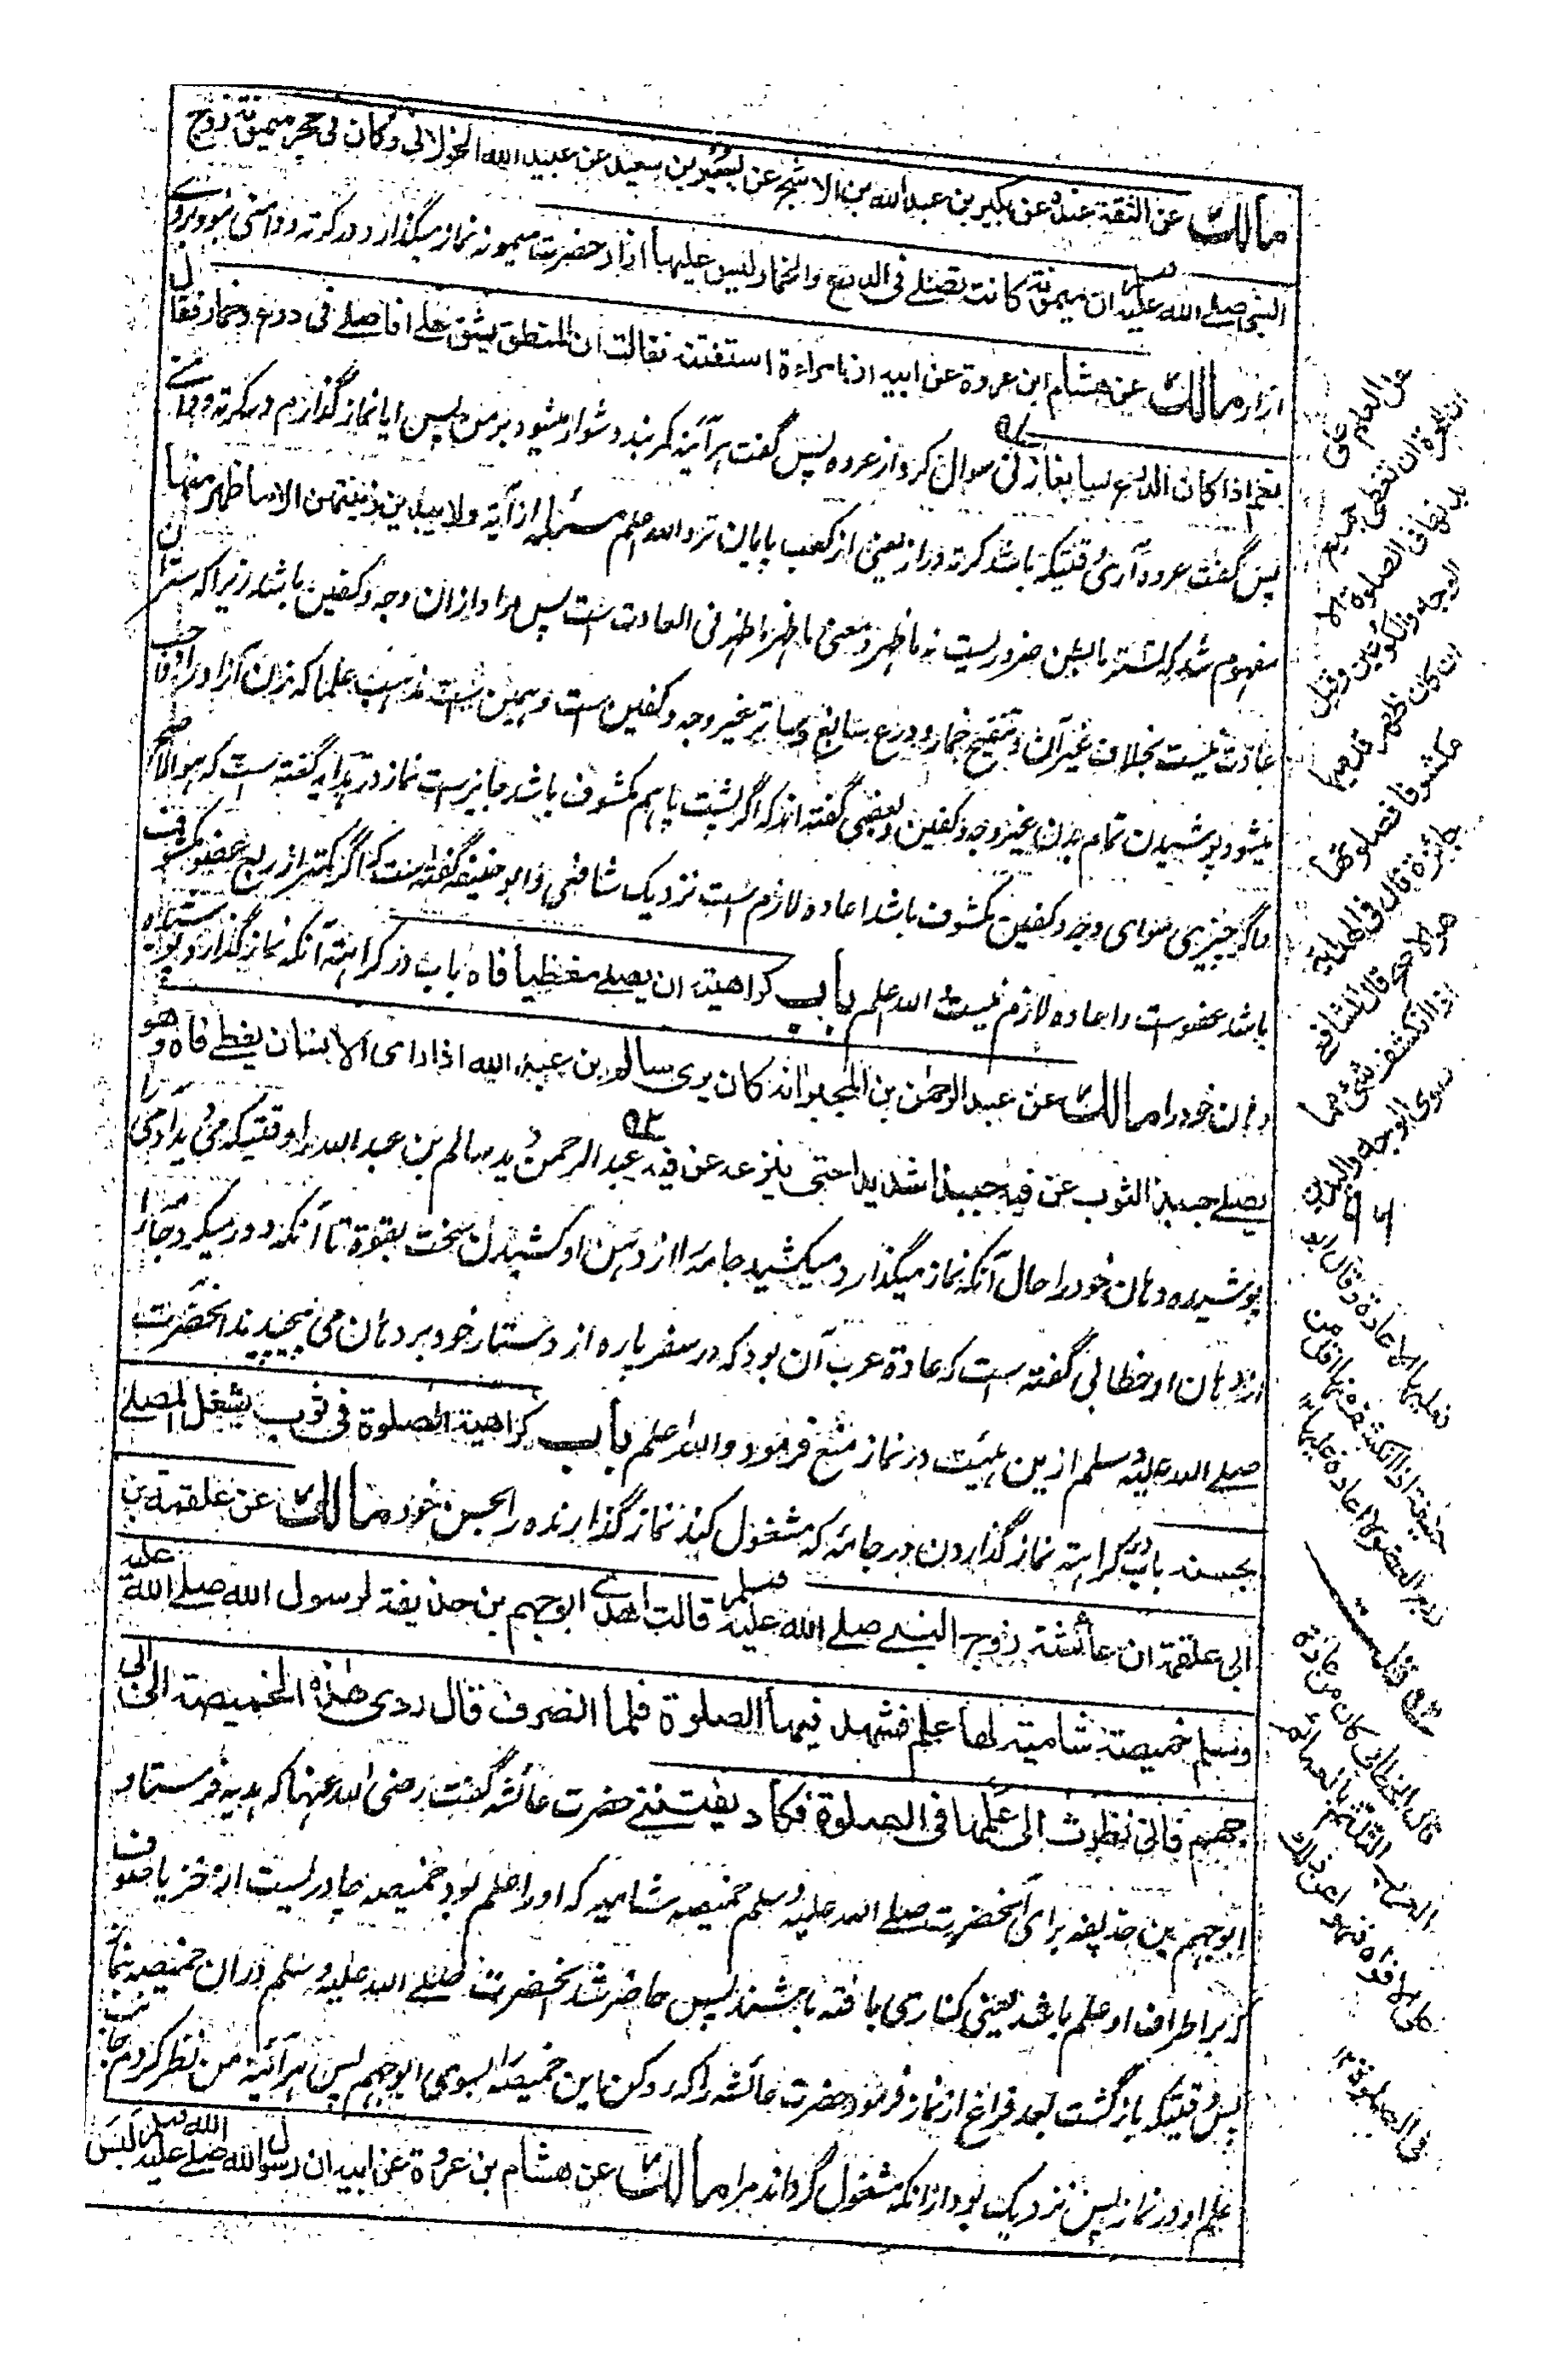 مالك عن الثقة عنده عن بكير بن عبد الله بن الاشج عن بسر بن سعيد عن عبيد الله الخولاني وكان في حجر ميمونة زوج
النبي صلى الله عليه وسلم ان ميمونة كانت تصلي في الدرع والخمار ليس عليها ازار حضرت ميمونه نماز ميگذارد در كرته و دامني نبود بروے
ازار مالك عن هشام ابن عروة عن ابيه ان امراءة استفتته فقالت ان المنطق يشق علي افاصلي في درع وخمار فقال
نعم اذا كان الدرع سابغا زنى سوال كرد از عروه پس گفت هرآئينه كمربند دشوار ميشود بر من پس ايا نماز گذارم در كرته ودامنے
پس گفت عروه آرى وقتيكه باشد كرته دراز يعنى از كعب پايان تر والله اعلم مسئله از آيه ولا يبدين زينتهن الا ما ظهر منها
مفهوم شد كه ستر ما بطن ضروريست نه ما ظهر ومعنى ما ظهر ما ظهر فى العادت ست پس مراد ازان وجه وكفين باشد زيراكه ستران
عادت نيست بخلاف غير آن و تنقيح خمار و درع سابغ وساتر غير وجه وكفين ست وهمين ست مذهب علما كه زن آزاد را واجب
ميشود پوشيدن تمام بدن غير وجه وكفين وبعضى گفته اند كه اگر پشت پا هم مكشوف باشد جايز ست نماز در هدايه گفته ست كه هو الاصح
واگر چيزى سواى وجه وكفين مكشوف باشد اعاده لازم ست نزديك شافعى وابو حنيفه گفته ست كه اگر كمتر از ربع عضو مكشوف
باشد عفوست واعاده لازم نيست الله اعلم باب كراهية ان يصلے مغطيا فاه باب در كراهته آنكه نماز گذارد پوشيده
دهان خود را مالك عن عبد الرحمن بن المجبر انه كان يرى سالم بن عبد الله اذا راى الانسان يغطے فاه وهو
يصلے جبذ الثوب عن فيه جبذا شديدا حتى ينزعه عن فيه عبد الرحمن ديد سالم بن عبد الله را وقتيكه مى ديد آدمى را
پوشيده دهان خود را حال آنكه نماز ميگذارد ميكشيد جامه را از دهن او كشيدن سخت بقوة تا آنكه دور ميكرد جامه را
از دهان او خطابى گفته ست كه عادة عرب آن بود كه در سفر پاره از دستار خود بر دهان مى پيچيدند آنحضرت
صلے الله عليه وسلم ازين هيئت در نماز منع فرمود والله اعلم باب كراهية الصلوة فى ثوب يشغل المصلے
بحسنه باب در كراهته نماز گذاردن در جامه كه مشغول كند نماز گذارنده را بحسن خود مالك عن علقمة بن
ابى علقمة ان عائشة زوج النبے صلے الله عليه وسلم قالت اهدى ابو جهم بن حذيفة لرسول الله صلے الله عليه
وسلم خميصة شامية لها علم فشهد فيها الصلوة فلما انصرف قال ردى هذه الخميصة الى ابى
جهم فانى نظرت الى علمها فى الصلوة فكاد يفتننے حضرت عائشه گفت رضى الله عنها كه هديه فرستاد
ابو جهم بن حذيفه براى آنحضرت صلے الله عليه وسلم خميصه شاميه كه او را علم بود خميصه چادريست از خز يا صوف
كه بر اطراف او علم باشد يعنى كنارى بافته باشند پس حاضر شد آنحضرت صلے الله عليه وسلم در ان خميصه نماز
پس وقتيكه باز گشت بعد فراغ از نماز فرمود حضرت عائشه را كه رد كن اين خميصه را بسوى ابو جهم پس هرآئينه من نظر كردم جانب
علم او در نماز پس نزديك بود از آنكه مشغول گرداند مرا مالك عن هشام بن عروة عن ابيه ان رسول الله صلے الله عليه وسلم لبس
بدنها فى الصلوة الا
الوجه والكوعين وقيل
ان كان ظهر قدميها
مكشوفا فصلوتها
جائزة قال فى الهداية
هو الاصح قال الشافعى
اذا انكشف شئ مما
سوى الوجه واليدين
فعليها الاعادة وقال ابو
حنيفة اذا انكشف ما اقل من
ربع العضو لا اعادة عليها
قلت
قال الخطابى كان من عادة
العرب التلثم بالعمائم
على الافواه فنهوا عن ذلك
فى الصلوة